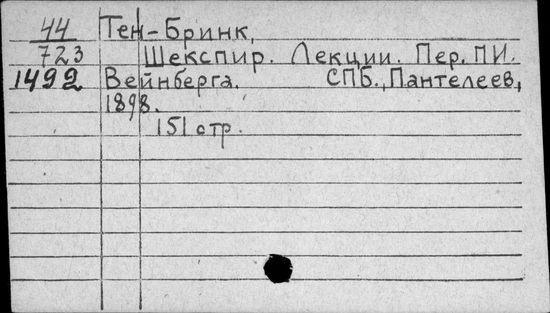 44 Тен-Бринк,
723 Шекспир. Лекции. Пер. П.И.
1492 Вейнберга. СПБ., Пантелеев,
1898.
151 стр.